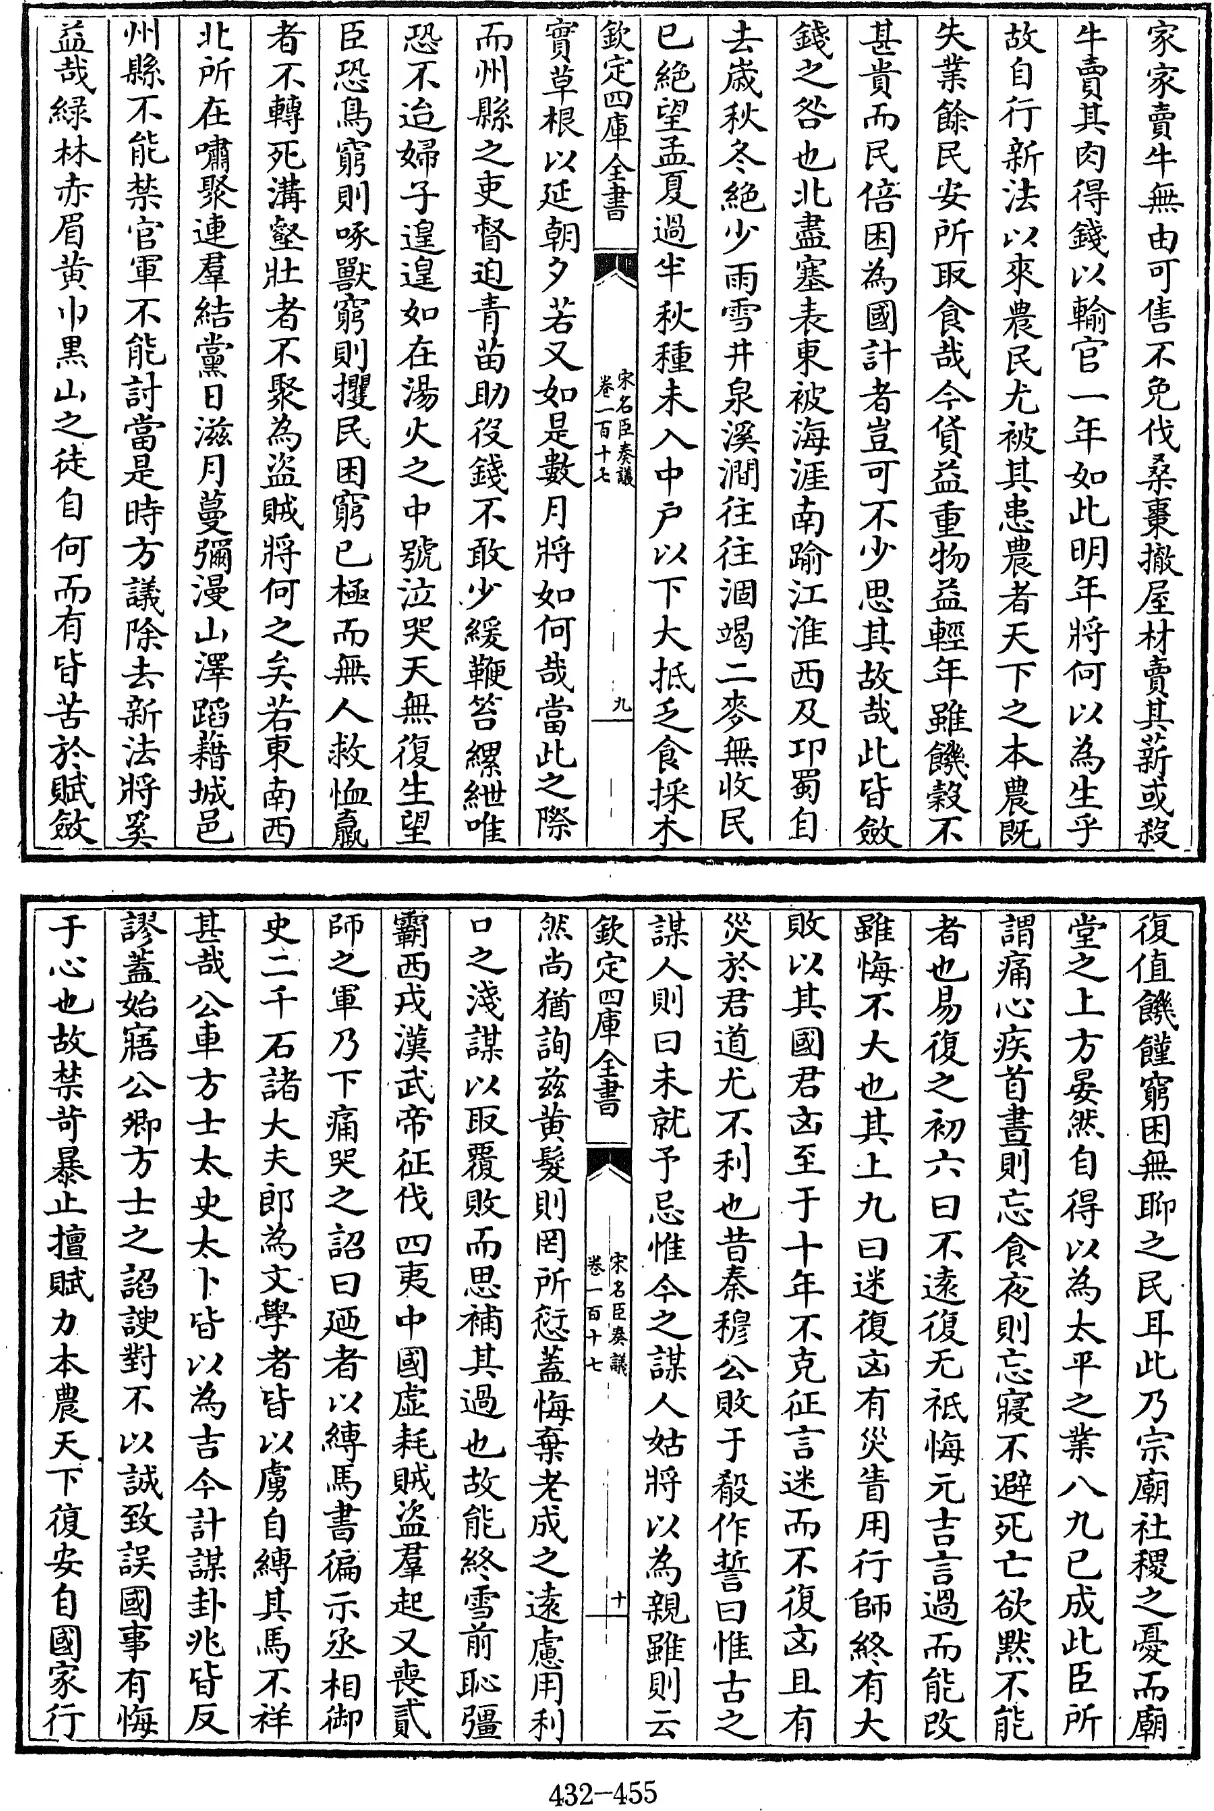 家家賣牛無由可售不免伐桑棗撤屋材賣其薪或殺
牛賣其肉得錢以輸官一年如此明年將何以為生乎
故自行新法以來農民尤被其患農者天下之本農既
失業餘民安所取食哉今貨益重物益輕年雖饑穀不
甚貴而民倍困為國計者豈可不少思其故哉此皆斂
錢之咎也北盡塞表東被海涯南踰江淮西及卭蜀自
去歲秋冬絶少雨雪井泉溪澗往往涸竭二麥無收民
已絶望孟夏過半秋種未入中户以下大抵乏食採木
欽定四庫全書
宋名臣奏議
卷一百十七
九
實草根以延朝夕若又如是數月將如何哉當此之際
而州縣之吏督迫青苗助役錢不敢少緩鞭笞縲紲唯
恐不迨婦子遑遑如在湯火之中號泣哭天無復生望
臣恐鳥窮則啄獸窮則攫民困窮已極而無人救恤羸
者不轉死溝壑壯者不聚為盗賊將何之矣若東南西
北所在嘯聚連羣結黨日滋月蔓彌漫山澤蹈藉城邑
州縣不能禁官軍不能討當是時方議除去新法將奚
益哉緑林赤眉黄巾黒山之徒自何而有皆苦於賦斂
復值饑饉窮困無聊之民耳此乃宗廟社稷之憂而廟
堂之上方晏然自得以為太平之業八九已成此臣所
謂痛心疾首晝則忘食夜則忘寢不避死亡欲黙不能
者也易復之初六曰不逺復无祇悔元吉言過而能改
雖悔不大也其上九曰迷復凶有災眚用行師終有大
敗以其國君凶至于十年不克征言迷而不復凶且有
災於君道尤不利也昔秦穆公敗于殽作誓曰惟古之
謀人則曰未就予忌惟今之謀人姑將以為親雖則云
欽定四庫全書
宋名臣奏議
卷一百十七
十
然尚猶詢兹黄髮則罔所愆蓋悔棄老成之逺慮用利
口之淺謀以取覆敗而思補其過也故能終雪前恥彊
霸西戎漢武帝征伐四夷中國虚耗賊盗羣起又喪貳
師之軍乃下痛哭之詔曰廼者以縛馬書徧示丞相御
史二千石諸大夫郎為文學者皆以虜自縛其馬不祥
甚哉公車方士太史太卜皆以為吉今計謀卦兆皆反
謬蓋始寤公卿方士之諂諛對不以誠致誤國事有悔
于心也故禁苛暴止擅賦力本農天下復安自國家行
432-455